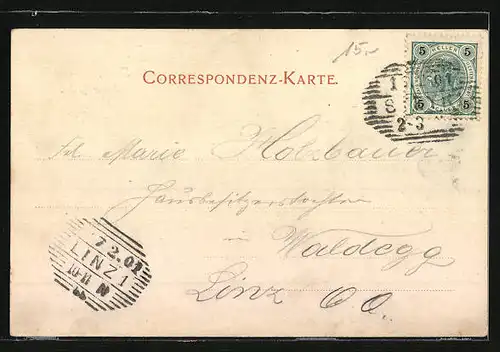 15.-
5 HELLER 5
5 5
CORRESPONDENZ-KARTE.
2-3
Frl. Marie Holzbauer
Hausbesitzerstochter
in Waldegg
Linz O.O.
7 2.01
LINZ 1
10-11 N